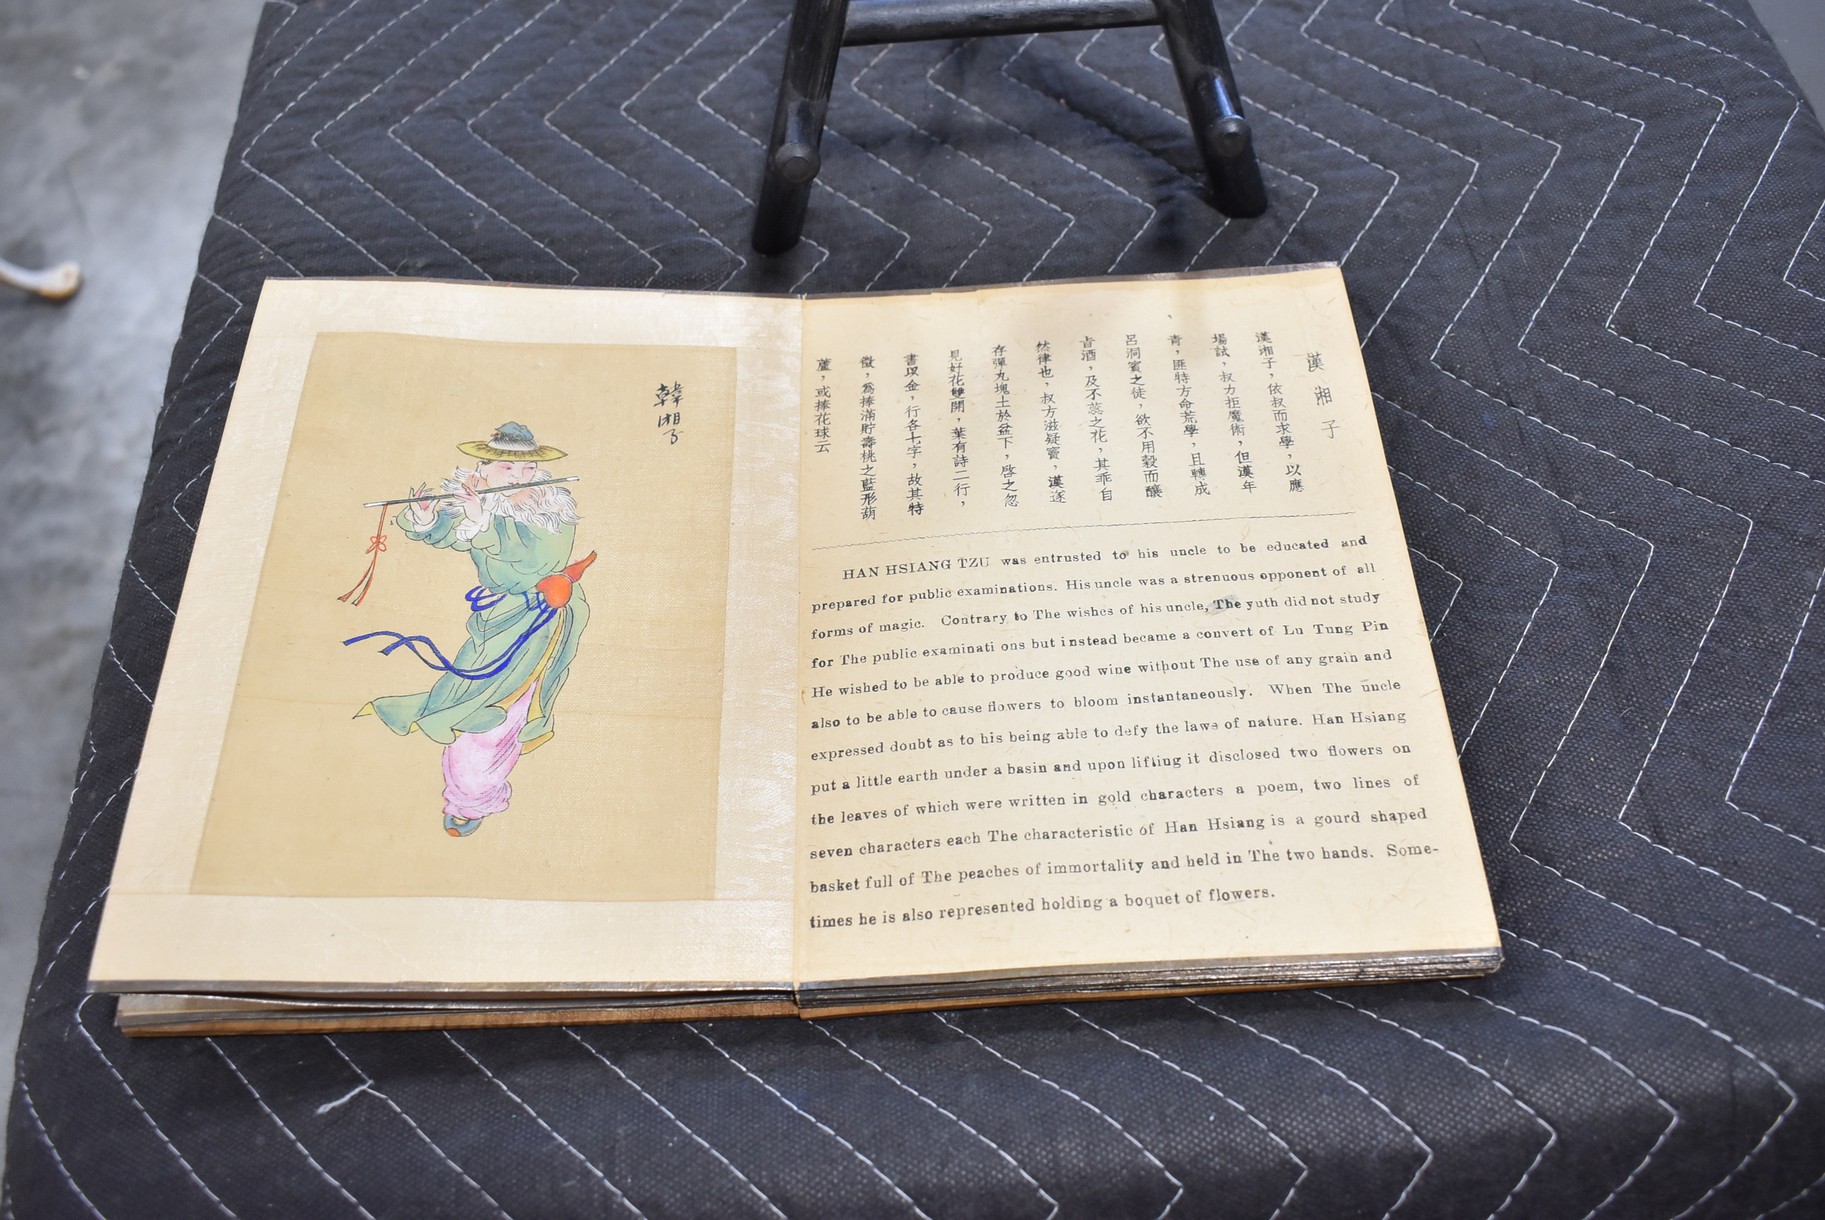 韓湘子
漢湘子
漢湘子，依叔而求學，以應
場試，叔力拒魔術，但漢年
青，匪特方命荒學，且轉成
呂洞賓之徒，欲不用穀而釀
旨酒，及不蕊之花，其乖自
然律也，叔方滋疑竇，漢逐
存彈丸塊土於盆下，啓之忽
見好花雙開，葉有詩二行，
書以金，行各七字，故其特
徵，爲捧滿貯壽桃之藍形葫
蘆，或捧花球云
HAN HSIANG TZU was entrusted to his uncle to be educated and
prepared for public examinations. His uncle was a strenuous opponent of all
forms of magic. Contrary to The wishes of his uncle, The yuth did not study
for The public examinati ons but instead became a convert of Lu Tung Pin
He wished to be able to produce good wine without The use of any grain and
also to be able to cause flowers to bloom instantaneously. When The uncle
expressed doubt as to his being able to defy the laws of nature. Han Hsiang
put a little earth under a basin and upon lifting it disclosed two flowers on
the leaves of which were written in gold characters a poem, two lines of
seven characters each The characteristic of Han Hsiang is a gourd shaped
basket full of The peaches of immortality and held in The two hands. Some-
times he is also represented holding a boquet of flowers.